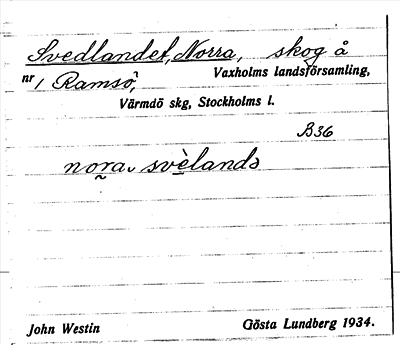 Svedlandet, Norra, skog å
nr 1 Ramsö, Vaxholms landsförsamling,
Värmdö skg, Stockholms l.
B36
nora svèlandə
John Westin Gösta Lundberg 1934.